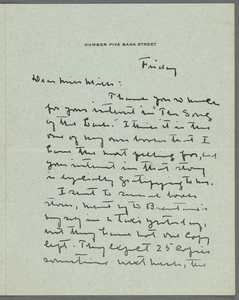 NUMBER FIVE BANK STREET
Friday
Dear Miss Mills:
Thank you so much
for your interest in "The Song
of the Lark." I think it is the
one of my own books that I
have the most feeling for, and
your interest in that story
is especially gratifying to me.
I went to several book
stores, next to Brentano's
in a taxi yesterday,
and they have not one copy
left. They expect 25 copies
sometime next week, the